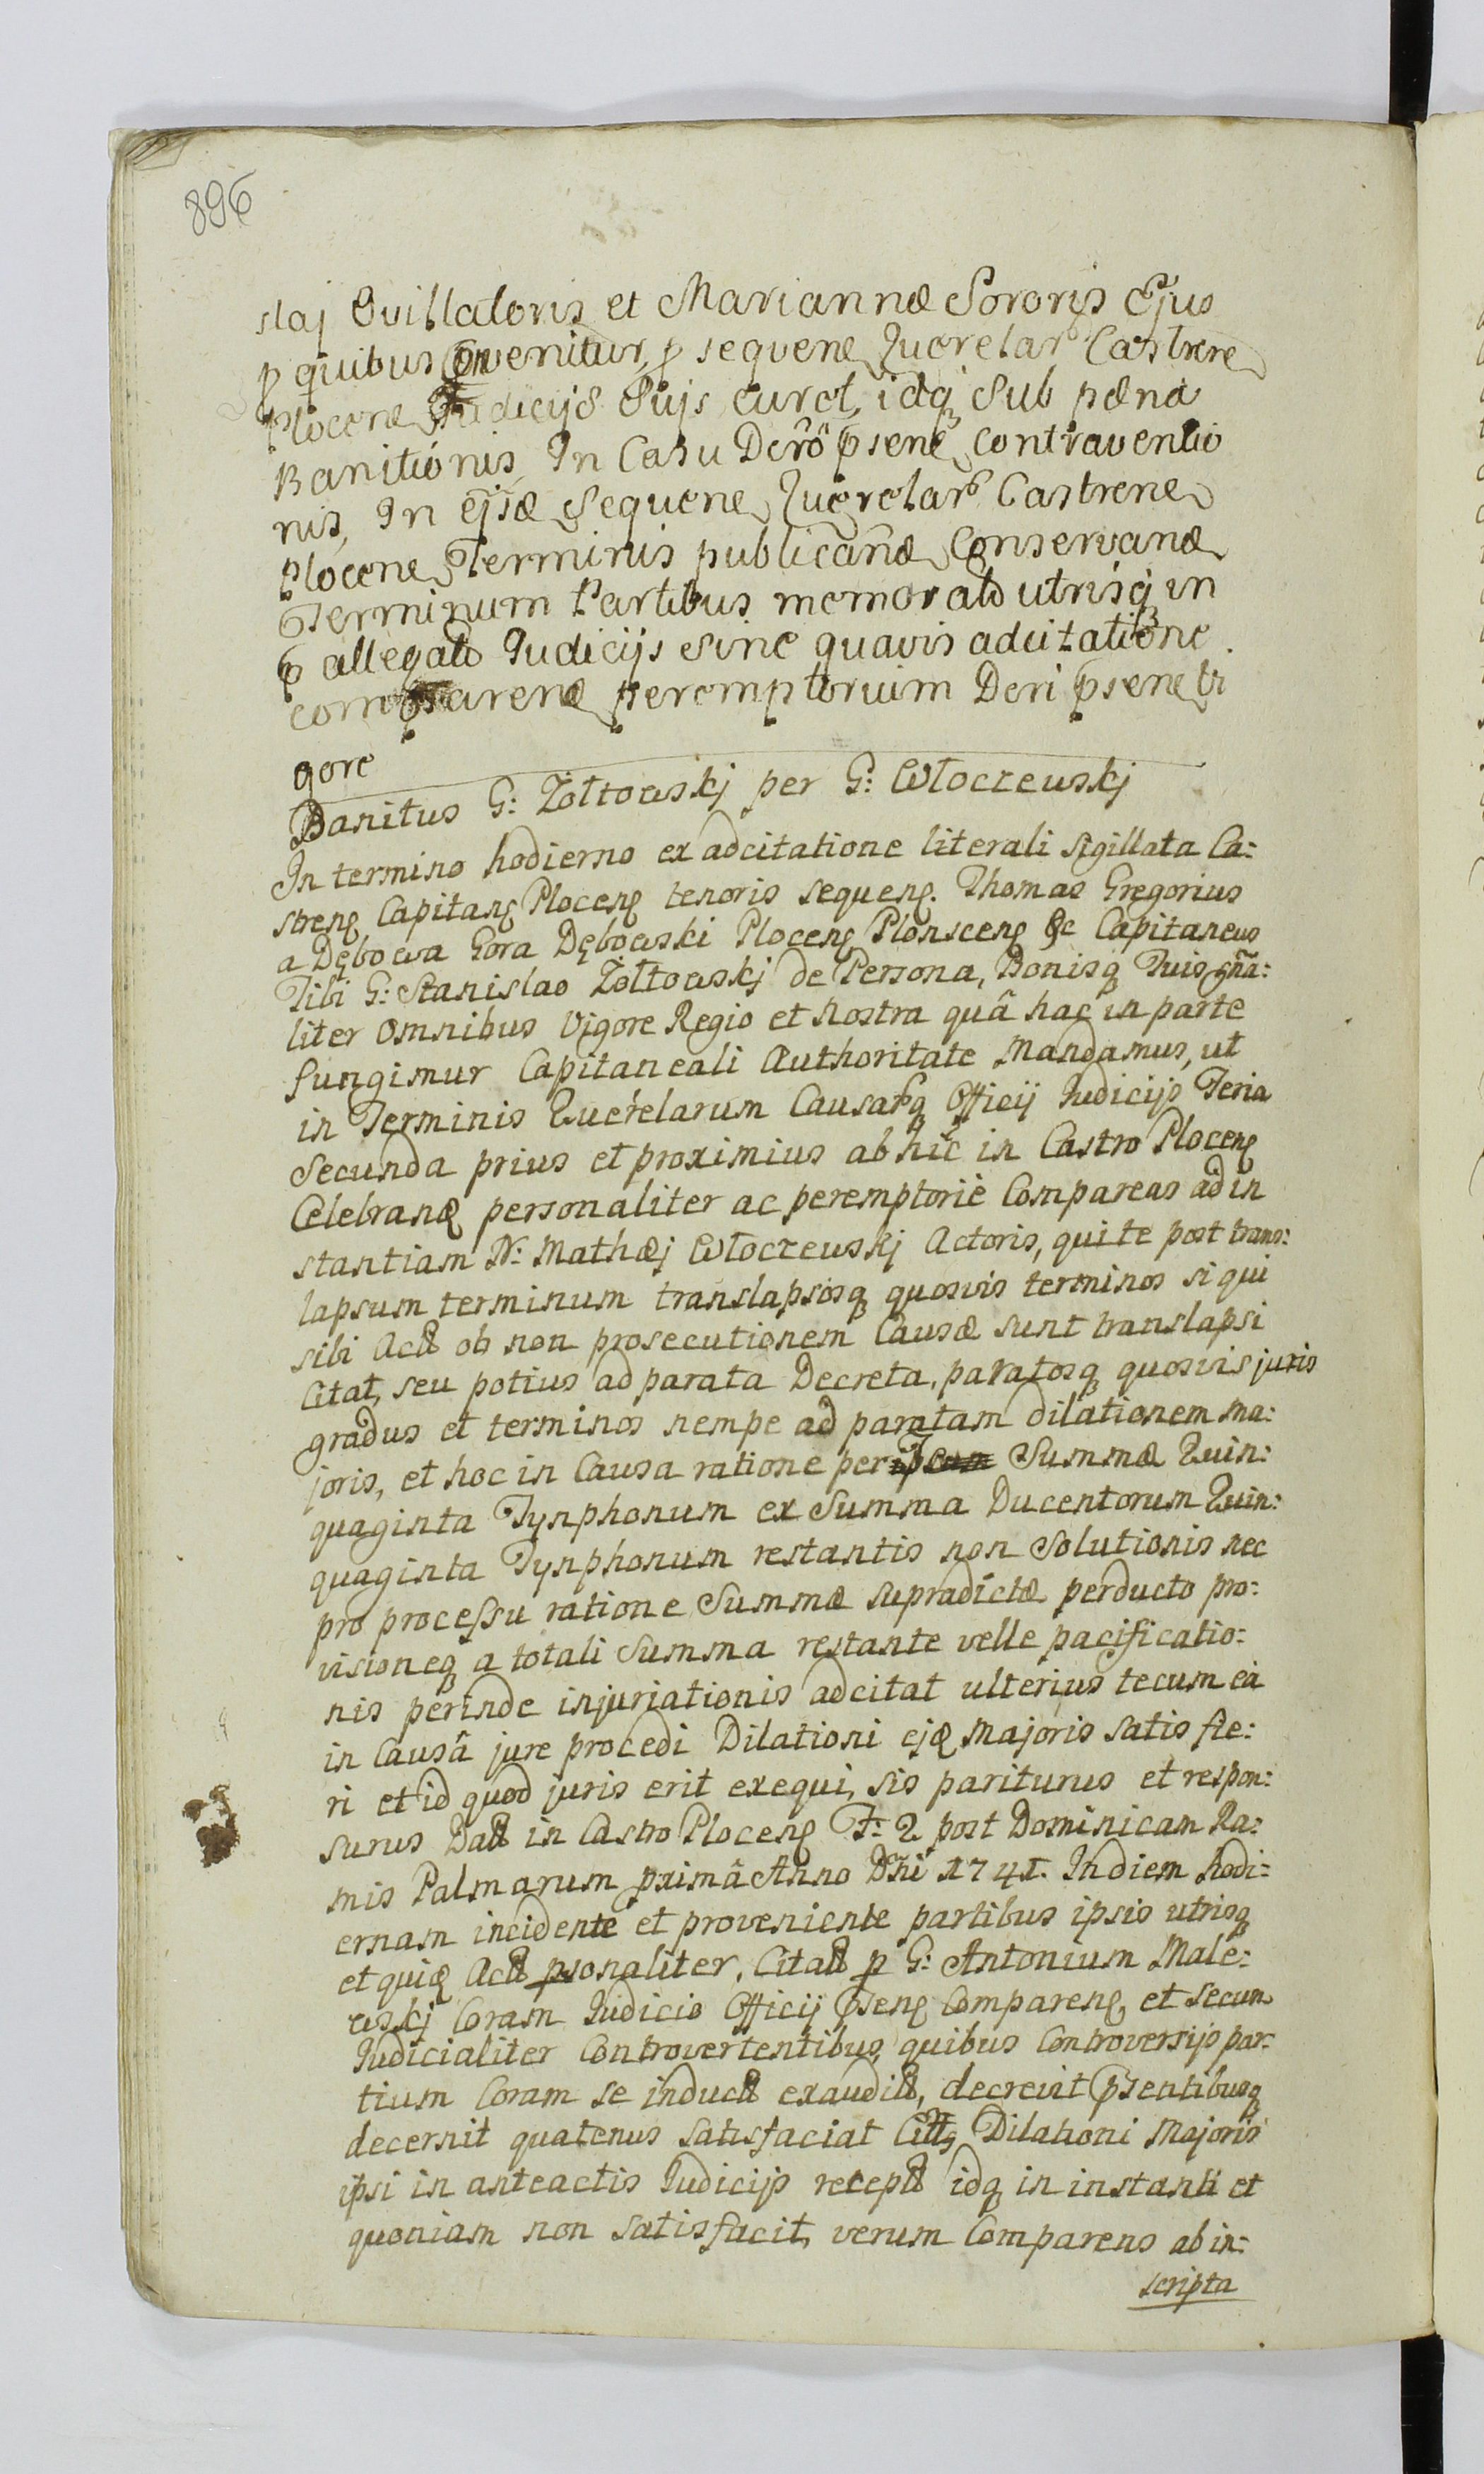 896
slaj Ovillatoris et Mariannæ Sororis Ejus
p quibus Convenitur, p sequene Querelar Castrene
Plocene Judicijs Suis curet, idq sub pæna
Banitionis, In Casu Decro psene contraventio
nis, In ejsæ sequene Querelar Castrene
Plocene Terminis publicanæ Conservanæ
Terminum Partibus memorato utrisq in
p allegato Judicijs sine quavis adcitatione
comparenæ peremptorium Decri psene vi
gore
Banitus G: Żołtowskj per G: Włoczewskj
In termino hodierno ex adcitatione literali sigillata Ca:
strene Capitane Plocene tenoris sequene. Thomas Gregorius
a Dębowa Gora Dębowski Plocene Plonscene &c Capitaneus
Tibi G: Stanislao Żołtowskj de Persona, Bonisq Tuis gña:
liter Omnibus Vigore Regio et Nostra quâ hac in parte
fungimur Capitaneali Authoritate Mandamus, ut
in Terminis Querelarum Causarq Officij Judicijs Feria
Secunda prius et proximius ab hic in Castro Plocene
Celebranæ personaliter ac peremptoriè Compareas ad in
stantiam N: Mathæj Włoczewskj Actoris, qui te post trans:
lapsum terminum translapsosq quosvis terminos si qui
sibi Acto ob non prosecutionem Causæ sunt translapsi
Citat, seu potius ad parata Decreta, paratosq quosvis juris
gradus et terminos nempe ad paratam dilationem ma:
joris, et hoc in Causa ratione per Te Summæ Quin:
quaginta Tynphonum ex Summa Ducentorum Quin:
quaginta Tynphonum restantis non Solutionis nec
pro processu ratione Summæ supradictæ perducto pro:
visioneq a totali Summa restante velle pacificatio:
nis perinde injuriationis adcitat ulterius tecum eà
in Causâ jure procedi Dilationi ejæ Majoris satis fie:
ri et id quod juris erit exequi, sis pariturus et respon:
surus Dato in Castro Plocene F: 2 post Dominicam Ra:
mis Palmarum primâ Anno Dñi 1741. In diem hodi:
ernam incidente et proveniente partibus ipsis utrisq
et quiæ Acto psonaliter, Citato p G: Antonium Male:
wskj Coram Judicio Officij psene Comparene, et secum
Judicialiter Controvertentibus, quibus Controversijs par:
tium Coram se inducto exaudito, decrevit psentibusq
decernit quatenus satisfaciat Citts Dilationi Majoris
ipsi in anteactis Judicijs recepto idq in instanti et
quoniam non satisfacit, verum Comparens ab in:
scripta